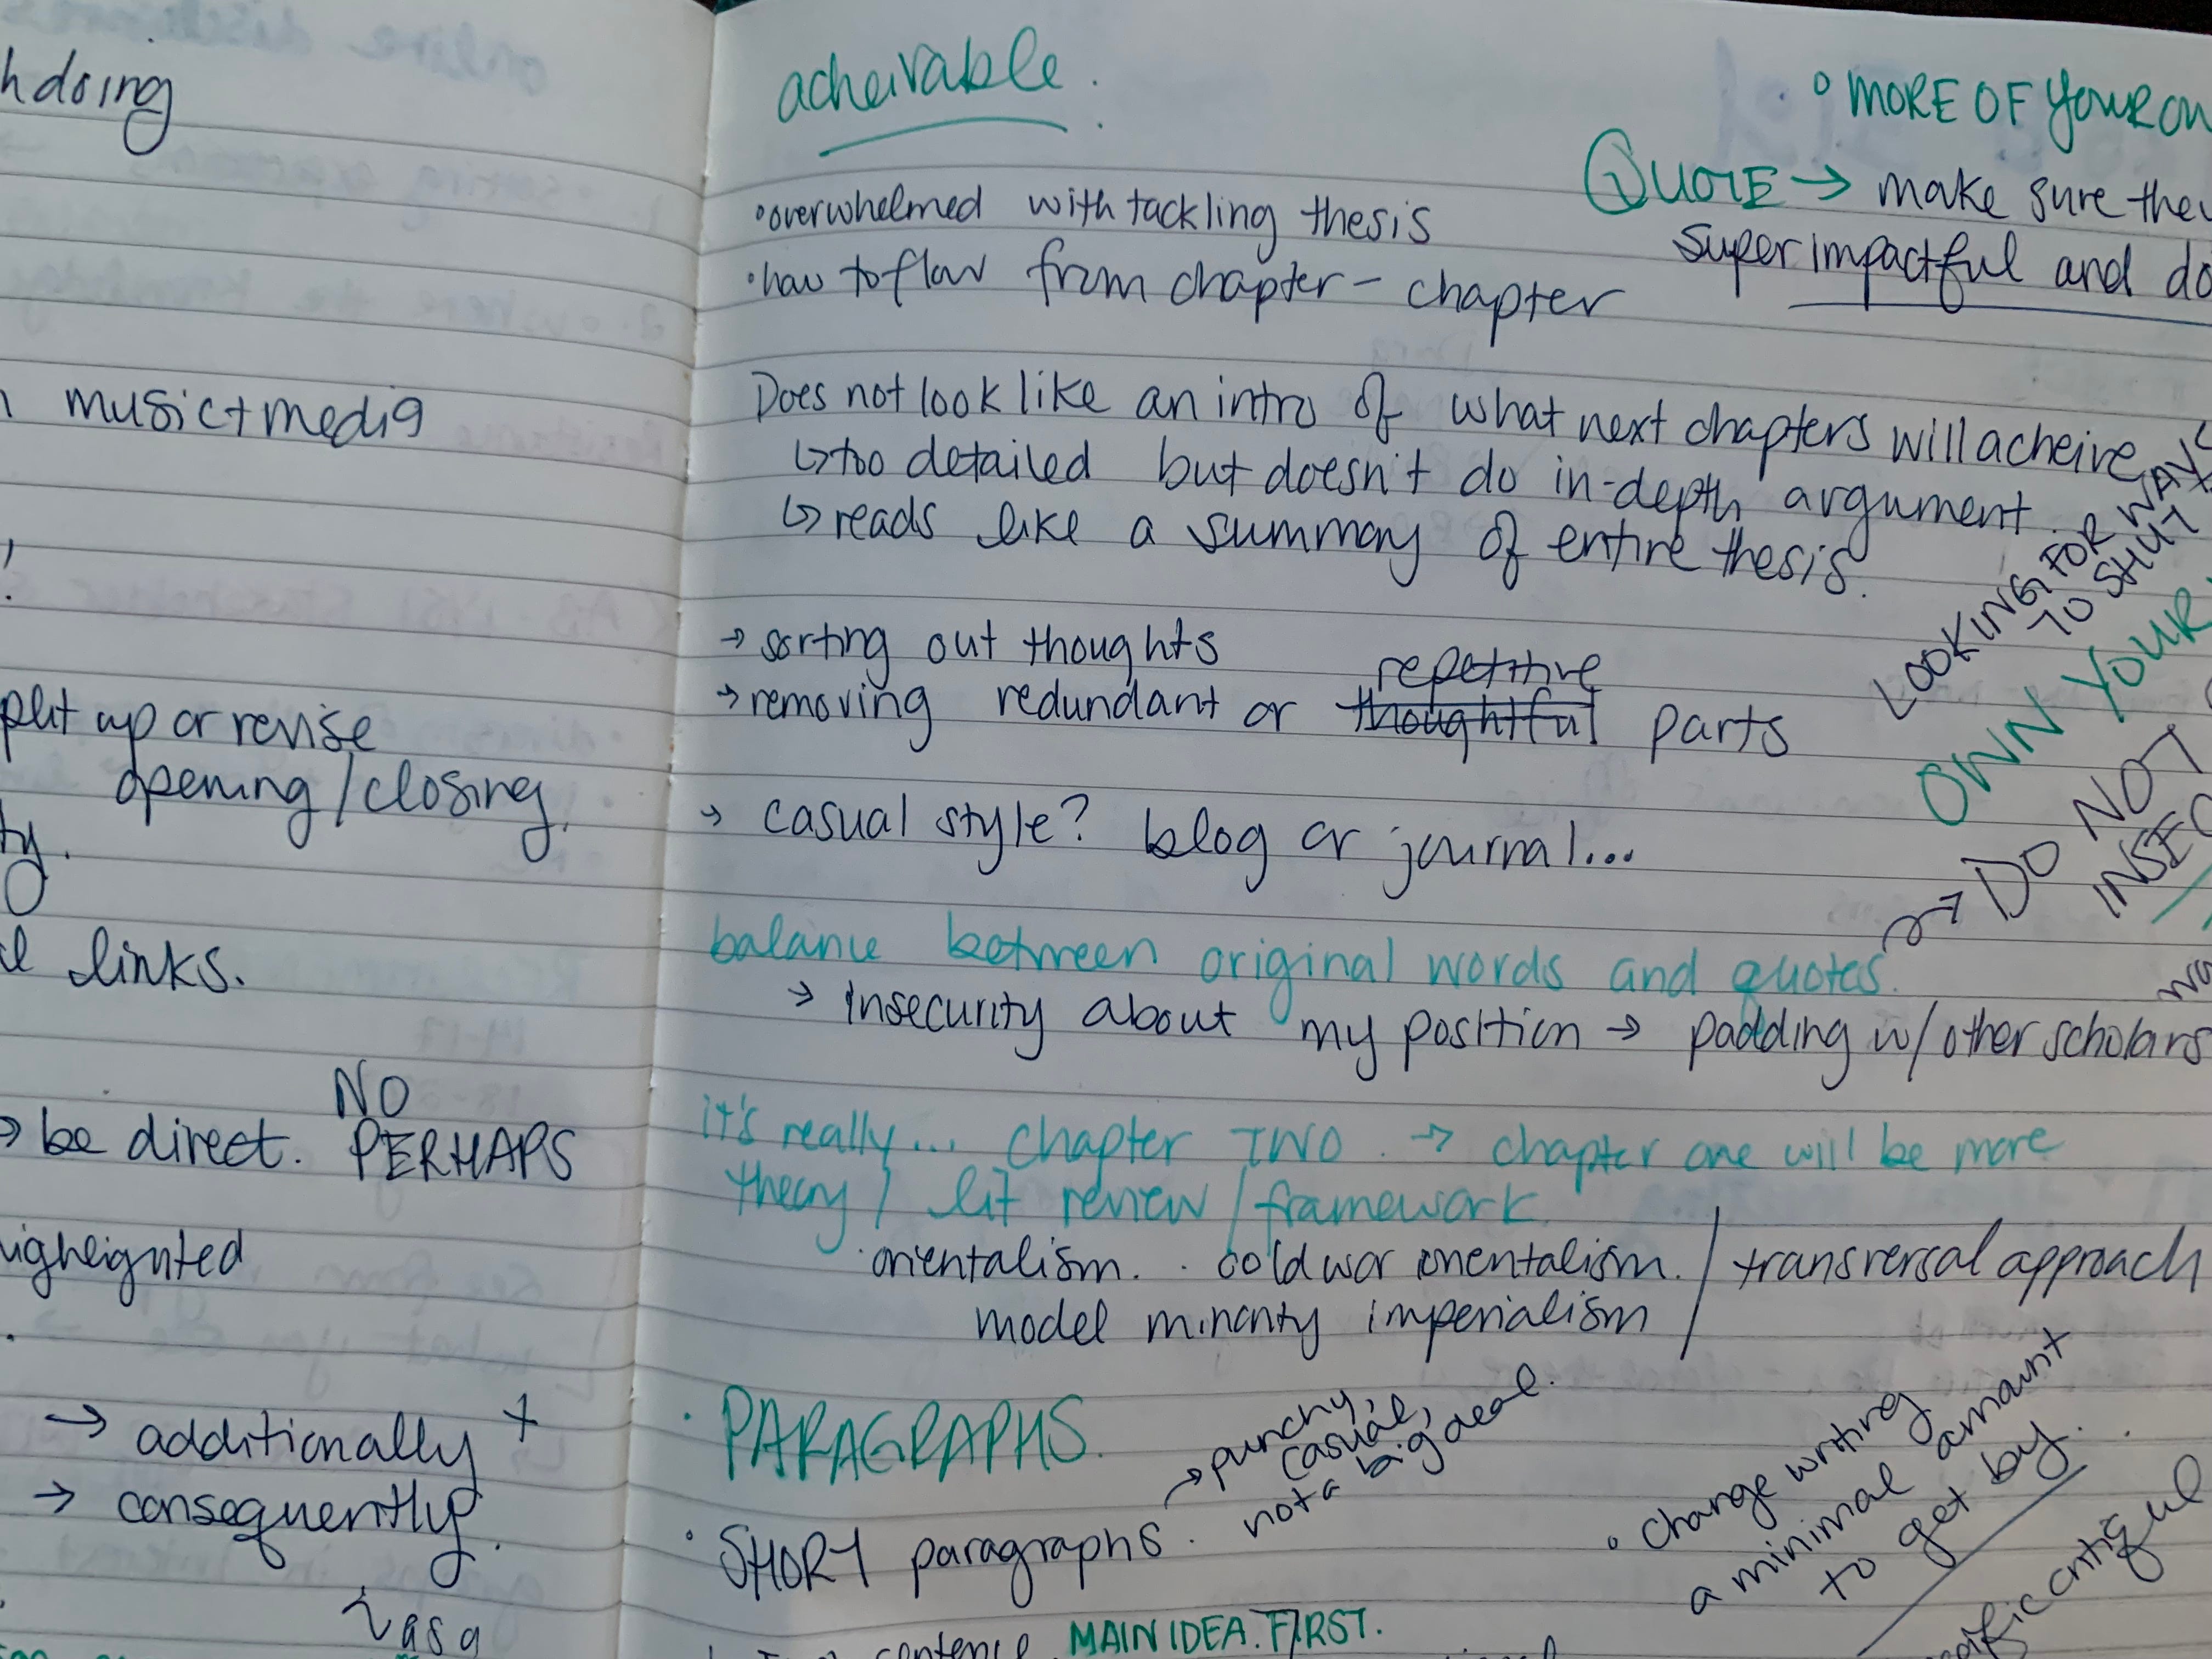 hdoing
music+media
put up or revise
opening/closing.
links.
NO
→ be direct. PERHAPS
→ additionally +
→ consequently.
as a
acheivable.
•overwhelmed with tackling thesis
•how to flow from chapter - chapter
Does not look like an intro of what next chapters will acheive
↳ too detailed but doesn't do in-depth argument.
↳ reads like a summary of entire thesis.
→ sorting out thoughts
repetitive
→ removing redundant or thoughtful parts
→ casual style? blog or journal...
balance between original words and quotes.
→ insecurity about my position → padding w/ other scholars
it's really... chapter TWO. → chapter one will be more
theory / lit review / framework.
orientalism. . cold war orientalism. / transversal approach
model minority imperialism
• PARAGRAPHS.
→ punchy,
casual,
not a big deal.
• SHORT paragraphs.
sentence MAIN IDEA. FIRST.
° MORE OF YOUR OW
QUOTE → make sure they
super impactful and do
LOOKING FOR WAYS
TO SHUT
OWN YOUR
→ DO NOT
INSEC
• change writing
a minimal amount
to get by.